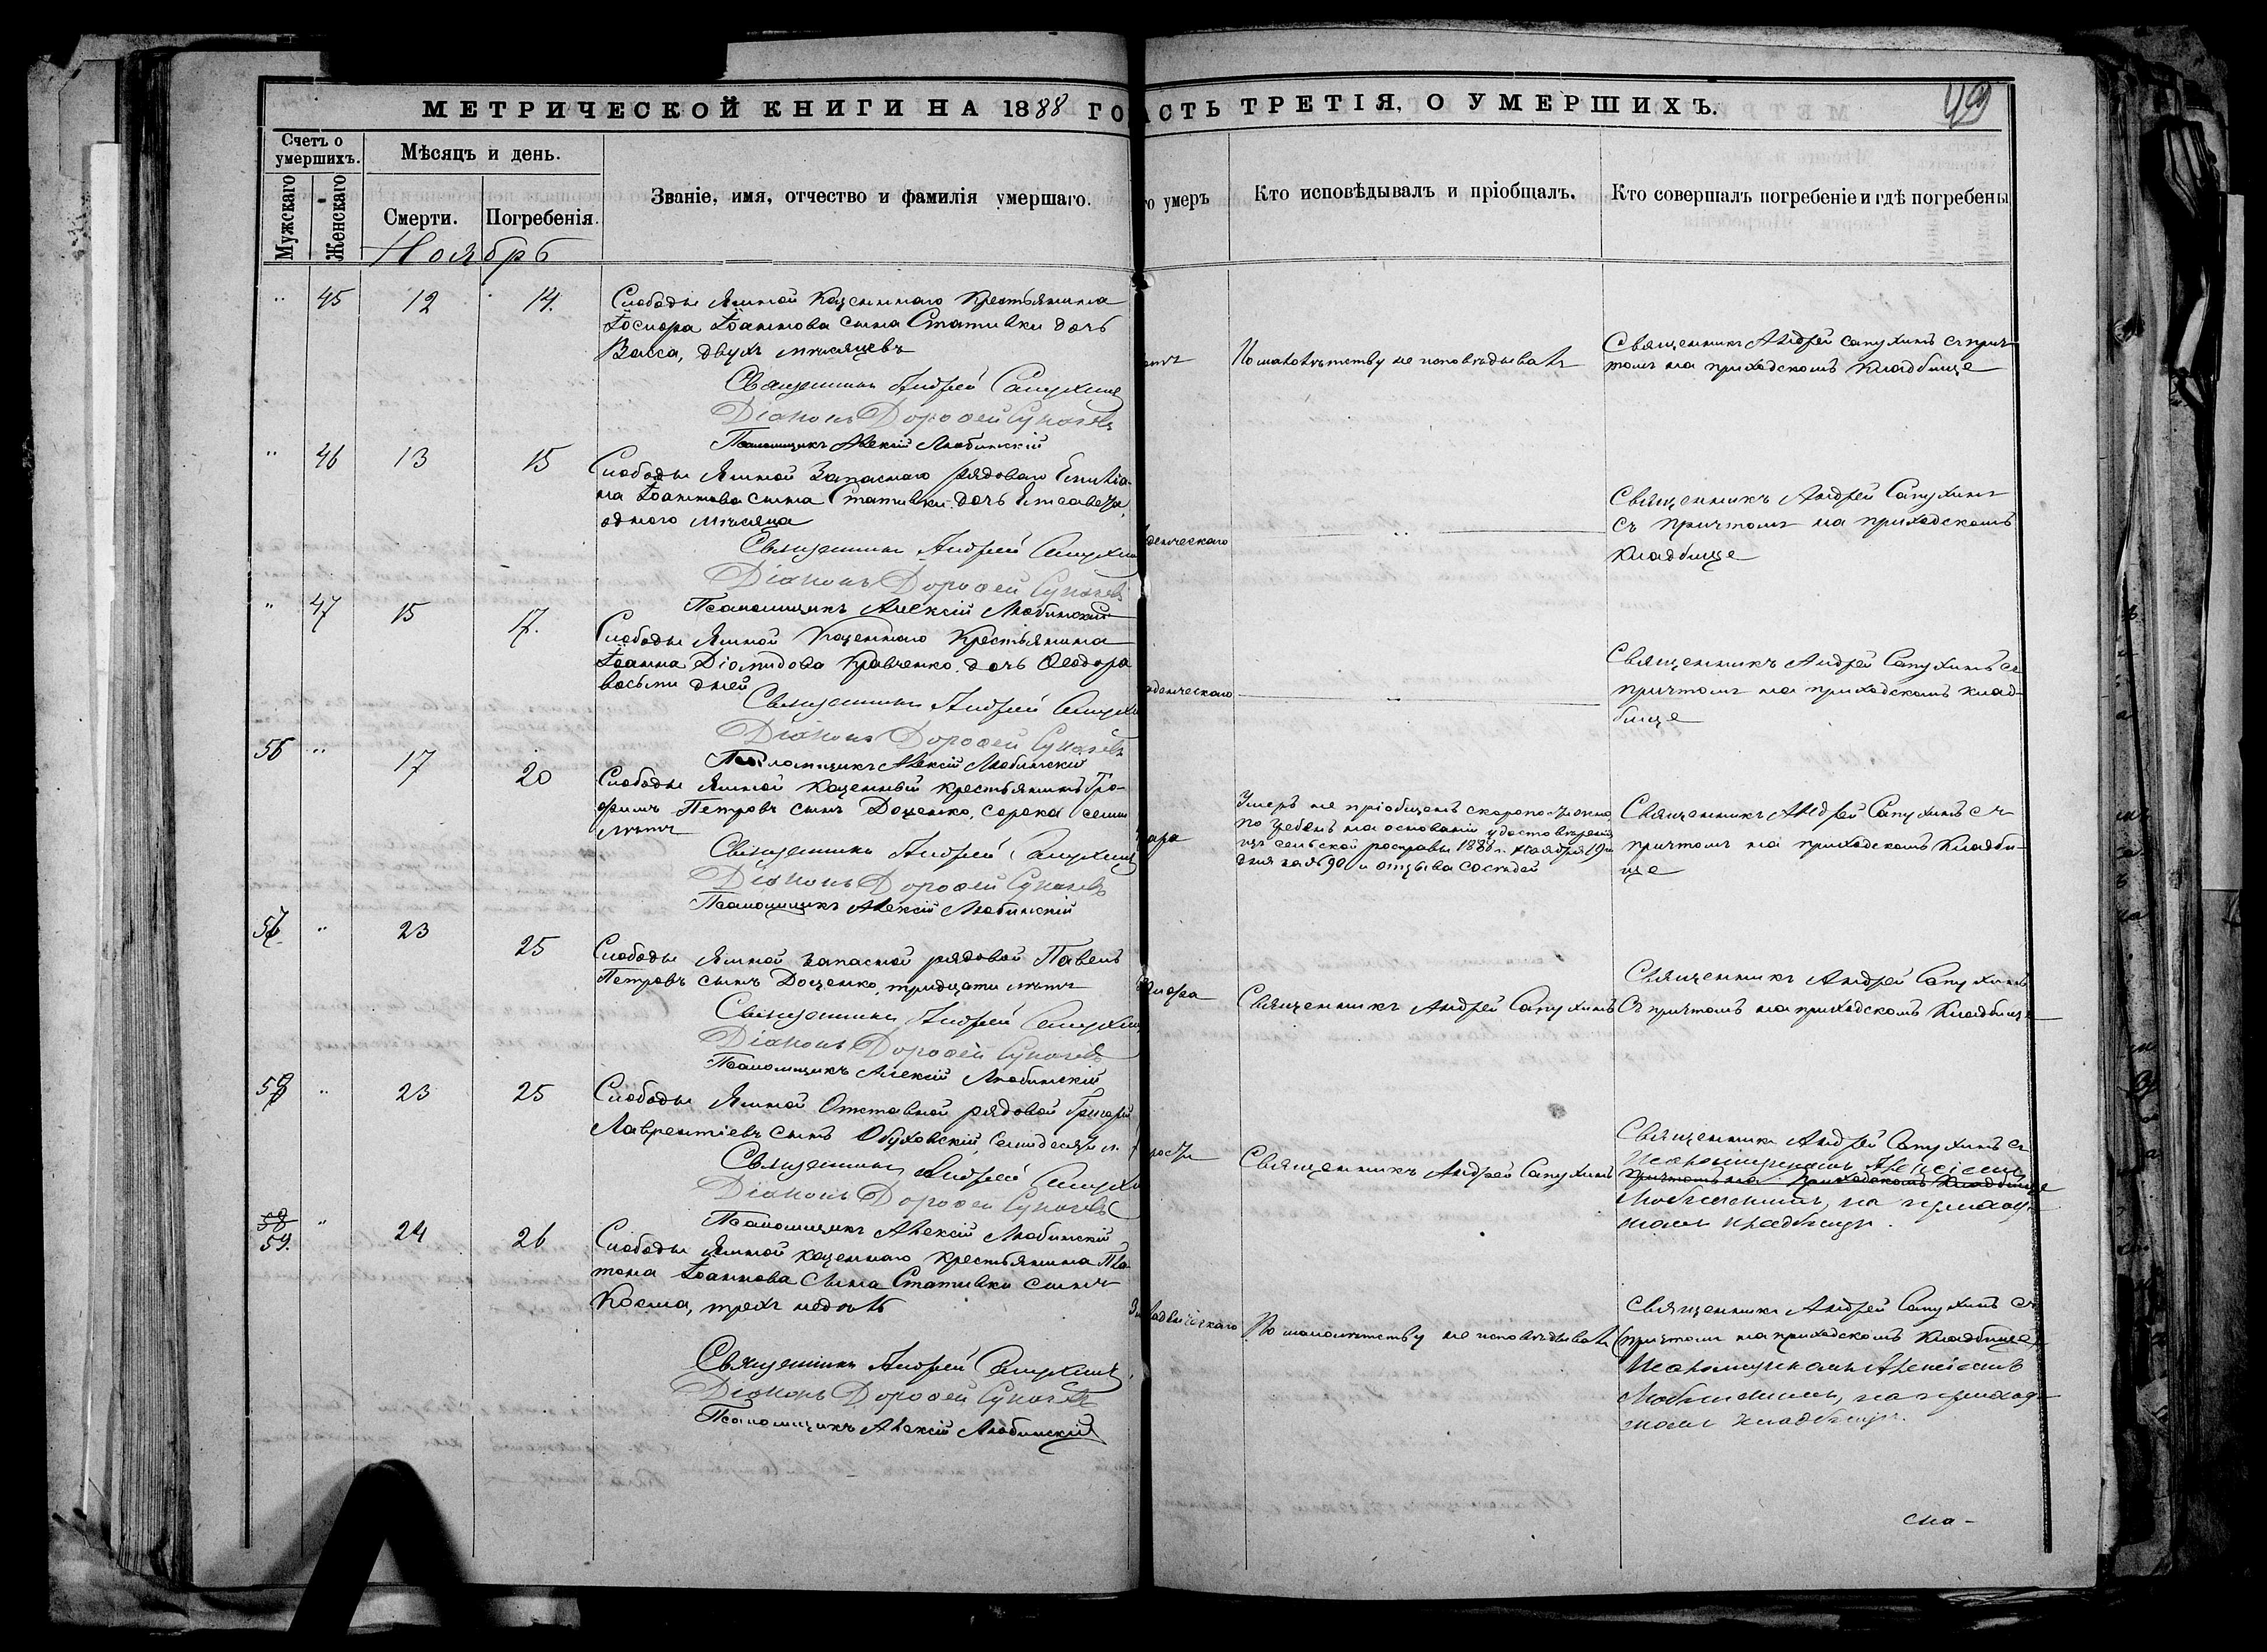 МЕТРИЧЕСКОЙ КНИГИ НА 1888 ГО
АСТЬ ТРЕТІЯ, О УМЕРШИХЪ.
49
Счетъ о умершихъ.
Мѣсяцъ и день.
Мужскаго
Женскаго
Смерти.
Погребенія.
Званіе, имя, отчество и фамилія умершаго.
го умеръ
Кто исповѣдывалъ и пріобщалъ.
Кто совершалъ погребеніе и гдѣ погребены
Ноябрь
" 45 12 14.
Слободы Ямной Казеннаго Крестьянина
Іосифа Іоаннова сына Стативки дочь
Васса, двухъ мѣсяцевъ
Священникъ Андрей Сапухинъ
Діаконъ Дорофей Сукачевъ
Псаломщикъ Алексій Любинскій
По малолѣтству не исповѣдывалъ
Священникъ Андрей Сапухинъ съ прич-
томъ на приходскомъ кладбище
" 46 13 15
Слободы Ямной Запаснаго рядоваго Емилiа-
на Іоаннова сына Стативки дочь Елисавета,
одного мѣсяца
Священникъ Андрей Сапухин
Діаконъ Дорофей Сукачевъ
Псаломщикъ Алексій Любинскій
денческаго
"
Священникъ Андрей Сапухинъ
съ причтомъ на приходскомъ
кладбище
" 47 15 17.
Слободы Ямной Казеннаго Крестьянина
Іоанна Діомидова Кравченко дочь Ѳеодора
восьми дней
Священникъ Андрей Сапухи
Діаконъ Дорофей Сукачевъ
Псаломщикъ Алексій Любинскій
аденческаго
"
Священникъ Андрей Сапухинъ съ
причтомъ на приходскомъ клад-
бище
56 " 17 20
Слободы Ямной казенный крестьянинъ Тро-
фимъ Петровъ сынъ Доценко, сорока семи
лѣтъ
Священникъ Андрей Сапухинъ
Діаконъ Дорофей Сукачевъ
Псаломщикъ Алексій Любинскій
Умеръ не пріобщенъ скоропостижно
погребенъ на основаніи удостовѣренія
изъ сельской росправы 1888 г. ноября 19го
дня за № 90 и отзыва сосѣдей
Священникъ Андрей Сапухинъ съ
причтомъ на приходскомъ кладби-
ще
57 " 23 25
Слободы Ямной запасной рядовой Павелъ
Петровъ сынъ Доценко, тридцати лѣтъ
Священникъ Андрей Сапухин
Діаконъ Дорофей Сукачевъ
Псаломщикъ Алексій Любинскій
Священникъ Андрей Сапухинъ
Священникъ Андрей Сапухинъ
съ причтомъ на приходскомъ кладбище
58 " 23 25
Слободы Ямной Отставной рядовой Григорій
Лаврентіевъ сынъ Обуховскій, семидесяти л.
Священникъ Андрей Сапухи
Діаконъ Дорофей Сукачевъ
Псаломщикъ Алексій Любинскій
рости
Священникъ Андрей Сапухинъ
Священникъ Андрей Сапухинъ съ
Псаломщикомъ Алексіемъ
причтомъ на приходскомъ кладбище
Любинскимъ, на приход-
комъ кладбищѣ.
58
59. " 24 26
Слободы Ямной казеннаго крестьянина Пла-
тона Іоаннова сына Стативки сынъ
Косма, трехъ недѣль
Священникъ Андрей Сапухинъ
Діаконъ Дорофей Сукачевъ
Псаломщикъ Алексій Любинскій
По малолѣтству не исповѣдывалъ
Священникъ Андрей Сапухинъ съ
(причтомъ на приходскомъ кладбище)
Псаломщикомъ Алексіемъ
Любинскимъ, на приход-
комъ кладбищѣ.